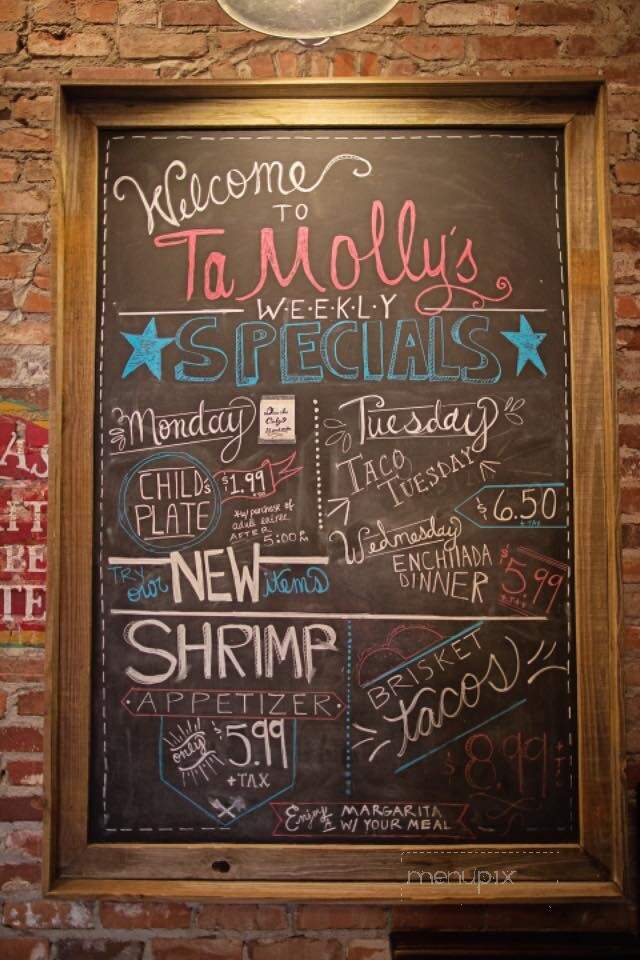 Welcome
TO
TaMolly's
W·E·E·K·L·Y
SPECIALS
Monday
Dine In
Only
CHILD's
PLATE
$1.99
+TAX
w/ purchase of
adult entree
AFTER
5:00
Tuesday
TACO
TUESDAY
$6.50
+TAX
Wednesday
ENCHILADA
DINNER
$5.99
+TAX
TRY
our NEW items
SHRIMP
APPETIZER
only $5.99
+TAX
BRISKET
tacos
$8.99
Enjoy A MARGARITA
W/ YOUR MEAL
menupix